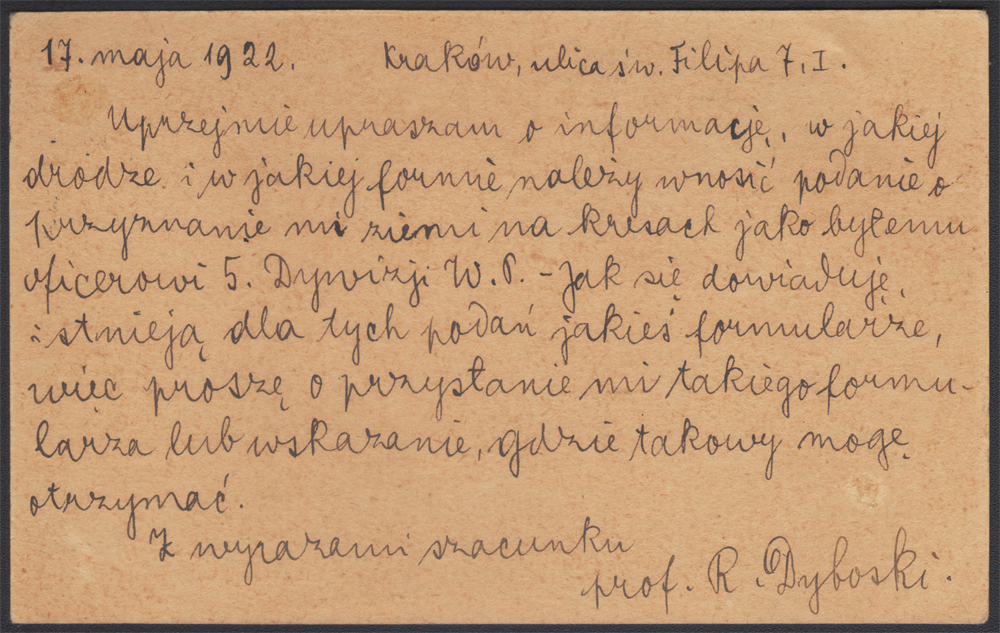 17. maja 1922. Kraków, ulica św. Filipa 7, I.
Uprzejmie upraszam o informację, w jakiej
drodze i w jakiej formie należy wnosić podanie o
przyznanie mi ziemi na kresach jako byłemu
oficerowi 5. Dywizji W. P. - Jak się dowiaduję,
istnieją dla tych podań jakieś formularze,
więc proszę o przysłanie mi takiego formu-
larza lub wskazanie, gdzie takowy mogę
otrzymać.
Z wyrazami szacunku
prof. R. Dyboski.